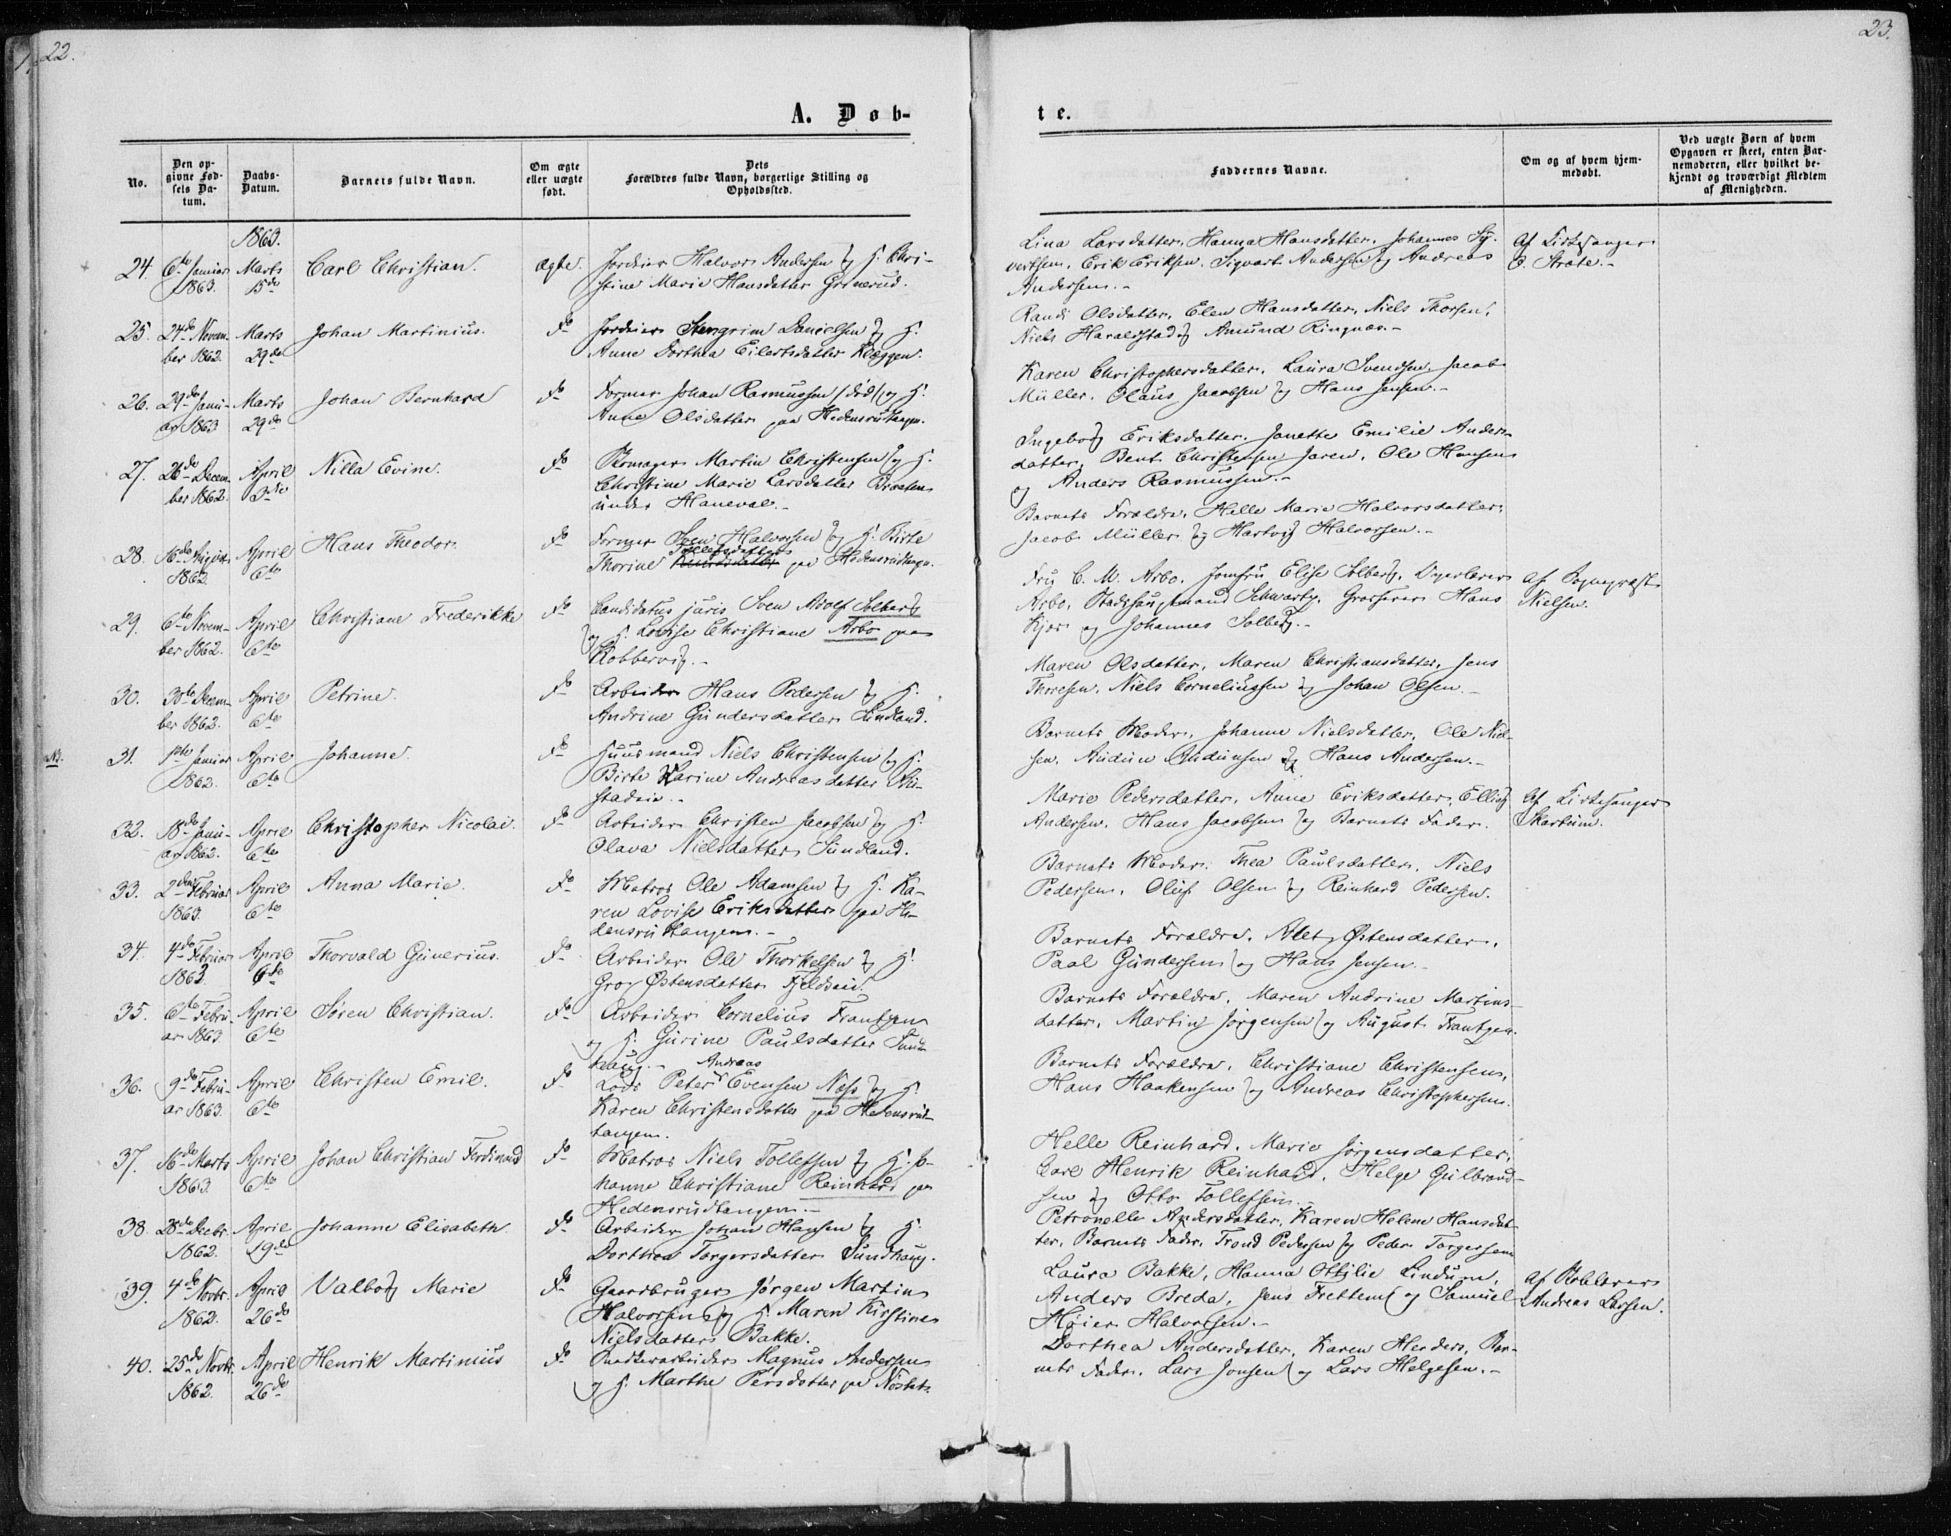 22.
23.
A. Døb-
te.
No.
Den op-
givne Fød-
sels Da-
tum.
Daabs-
Datum.
Barnets fulde Navn.
Om ægte
eller uægte
født.
Dets
Forældres fulde Navn, borgerlige Stilling og
Opholdssted.
Faddernes Navne.
Om og af hvem hjem-
medøbt.
Ved uægte Børn af hvem
Opgaven er skeet, enten Bar-
nemoderen, eller hvilket be-
kjendt og troværdigt Medlem
af Menigheden.
1863.
24. 6te Januar 1863. Marts 15de Carl Christian. Ægte. Jordeier Halvor Andersen og H. Chri-
stine Marie Hansdatter Grønerud.
Lina Larsdatter, Hanna Hansdatter, Johannes Sy-
vertsen, Erik Eriksen, Sigvart Andersen og Andreas
Andersen.-
Af Kirkesanger
O. Strøte.-
25. 24de Novem-
ber 1862. Marts 29de Johan Martinius. do Jordeier Stengrim Danielsen og H.
Anne Dorthea Eilertsdatter Kleggen.
Randi Olsdatter, Elen Hansdatter, Niels Thorsen,
Niels Haraldstad og Amund Ringnæs.-
26. 29de Janu-
ar 1863 Marts 29de Johan Bernhard do Former Johan Rasmussen /død/ og H.
Anne Olsdatter paa Hedensrudtangen.
Karen Christophersdatter, Laura Svendsen, Jacob
Müller, Olaus Jacobsen og Hans Jensen.-
27. 26de Decem-
ber 1862. April 3die Nilla Evine. do Skomager Martin Christensen og H.
Christine Marie Larsdatter Braaten
under Haneval.-
Ingeborg Eriksdatter, Janette Emilie Anders-
datter, Bent Christensen Jaren, Ole Hansen
og Anders Rasmussen.-
28. 16de 1863. April 6te Hans Theodor. do Former Iver Halvorsen og H. Birte
Thorine Tollefsdatter paa Hedensrudtangen.
Barnets Forældre, Helle Marie Halvorsdatter,
Jacob Müller og Hartvig Halvorsen.-
29. 6te Novem-
ber 1862. April 6te Christiane Frederikke do Candidatus juris Sven Adolf Solberg
og H. Lovise Christiane Arbo paa
Kobbervig.-
Fru C. M. Arbo, Jomfru Elise Solberg, Dyrlæger
Arbo, Stadshauptmand Schwartz, Grosserer Hans
Kjær og Johannes Solberg.-
Af Sognepræst
Nielsen.
30. 30te Decem-
ber 1862. April 6te Petrine. do Arbeider Hans Pedersen og H.
Andrine Gundersdatter Sundland.
Maren Olsdatter, Maren Christiansdatter, Jens
Thoresen, Niels Corneliussen og Johan Olsen.-
31. 1ste Januar 1862. April 6te Johanne. do Huusmand Niels Christensen og H.
Birte Karine Andreasdatter
stadeie.-
Barnets Moder, Johanne Nielsdatter, Ole Niel-
sen, Audun Audunsen og Hans Andersen.-
32. 18de Janu-
ar 1862. April 6te Christopher Nicolai. do Arbeider Christen Jacobsen og H.
Olava Nielsdatter Sundland.
Marie Pedersdatter, Anne Eriksdatter, Elling
Andersen, Hans Jacobsen og Barnets Fader.
Af Kirkesanger
Skartum.
33. 2den Februar 1863. April 6te Anna Marie. do Matros Ole Adamsen og H. Ka-
ren Lovise Eriksdatter paa He-
densrudtangen.-
Barnets Moder, Thea Paulsdatter, Niels
Pedersen, Oluf Olsen og Reinhard Pedersen.
34. 4de Februar 1863 April 6te Thorvald Gunerius. do Arbeider Ole Thorkelsen og H.
Gro Østensdatter Fjeldeie.
Barnets Forældre, Alet Østensdatter,
Paal Gundersen og Hans Jensen.-
35. 6te Febru-
ar 1863. April 6te Søren Christian. do Arbeider Cornelius Frantzen
og H. Gurine Paulsdatter Sund-
haug.-
Barnets Forældre, Maren Andrine Martins-
datter, Martin Jørgensen og August Frantzen.
36. 9de Febru-
ar 1863. April 6te Christen Emil. do Lods Peter Andreas Evensen Næss og H.
Karen Christensdatter paa Hedensrud-
tangen.
Barnets Forældre, Christiane Christensen,
Hans Haakensen og Andreas Christophersen.
37. 16de Marts 1863. April 6te Johan Christian Ferdinand do Matros Niels Tollefsen og H. Jo-
hanne Christiane Reinhard paa
Hedensrudtangen.-
Helle Reinhard, Marie Jørgensdatter,
Carl Henrik Reinhard, Helge Gulbrand-
sen og Otto Tollefsen.-
38. 28de Decbr. 1862. April 19de Johanne Elisabeth. do Arbeider Johan Hansen og H.
Dorthea Torgersdatter Sundhaug.
Petronelle Andersdatter, Karen Helene Hansdat-
ter, Barnets Fader, Trond Pedersen og Peder Torgersen
39. 4de Novbr. 1862. April 26de Valborg Marie do Gaardbruger Jørgen Martin
Halvorsen og H. Maren Kirstine
Nielsdatter Bakke.
Laura Bakke, Hanna Ottilie Lindum,
Anders Breda, Jens Frettem og Samuel
Høier Halvorsen.-
Af Skolelærer
Andreas Larsen.
40. 25de Novbr. 1862. April 26de Henrik Martinius do Magnus Andersen
og H. Marthe Persdatter paa Nøstet.
Dorthea Andersdatter, Karen Herders, Bar-
nets Fader, Lars Jonsen og Lars Helgesen.-